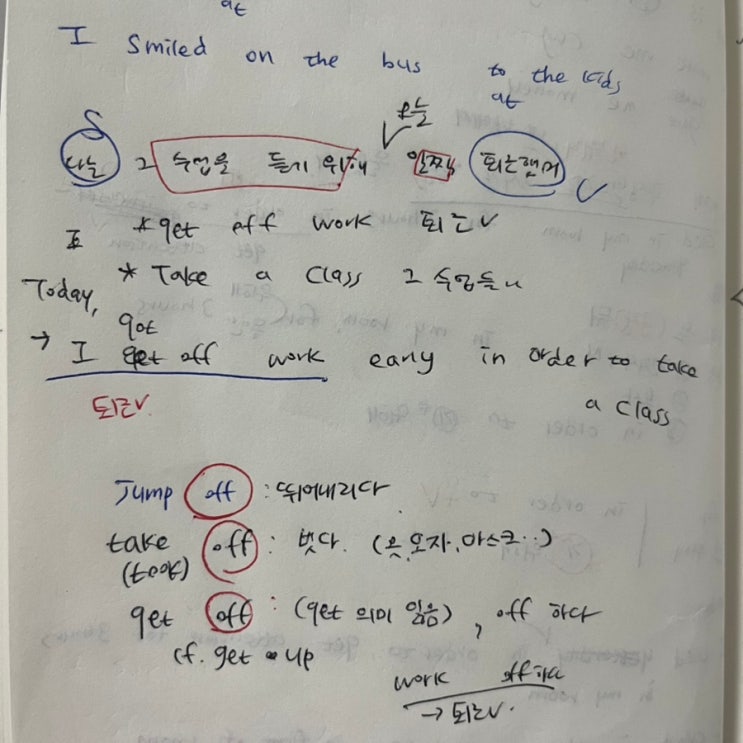 at
I smiled on the bus to the kids
at
오늘
나는 그 수업을 듣기 위해 일찍 퇴근했어
I
* get off work 퇴근
* Take a class 그 수업
Today,
got
→ I get off work early in order to take
a class
퇴근
Jump off : 뛰어내리다
take off : 벗다. (옷, 모자, 마스크..)
(took)
get off : (get 의미 잃음), off 하다
cf. get up
work off 하다
→ 퇴근